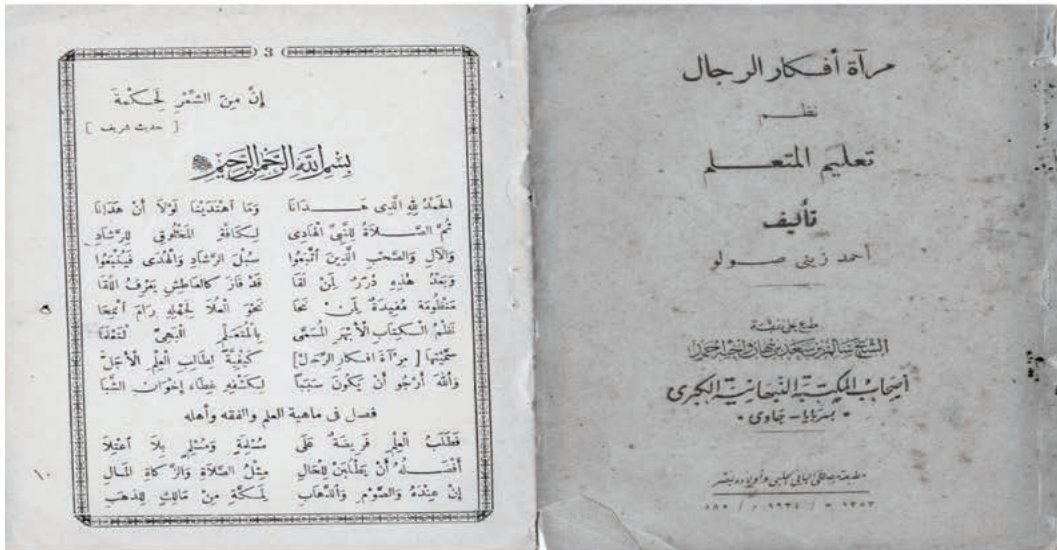 مرآة أفكار الرجال
نظم
تعليم المتعلم
تأليف
أحمد زينى صولو
طبع على نفقة
الشيخ سالم بن سعد بن نبهان وأخيه أحمد
أصحاب المكتبة النبهانية الكبرى
بسربايا - جاوى
مطبعة مصطفى البابى الحلبى وأولاده بمصر
3
إِنَّ مِنَ الشِّعْرِ لَحِكْمَةً
[ حديث شريف ]
بسم الله الرحمن الرحيم
الحَمْدُ لِلهِ الَّذِى هَدَانَا وَمَا اهْتَدَيْنَا لَوْلاَ أَنْ هَدَانَا
ثُمَّ الصَّلاَةُ لِلنَّبِىِّ الْهَادِى لِكَافَّةِ المَخْلُوقِ لِلرَّشَادِ
وَالآلِ وَالصَّحْبِ الَّذِينَ اتَّبَعُوا سُبُلَ الرَّشَادِ وَالْهُدَى
وَبَعْدُ هٰذِهِ دُرَرٌ لِمَنْ لَقَا قَدْ فَازَ كالعَاطِشِ يَعْرِفُ اللِّقَا
مَنْظُومَة مُفِيدَةٌ لِمَنْ نَحَا نَحْوَ الْعُلاَ لِجَهْلِهِ رَامَ
نَظْمُ الْكِتَابِ الْأَبْهَرِ الْمُسَمَّى بِالْمُتَعَلِّمِ الْبَهِىِّ
سَمَّيْتُهَا [مِرْآةَ افكارِ الرَّجُلِ] كَيْفِيَّةٌ لِطَالِبِ الْعِلْمِ الْأَجَلِّ
وَاللهَ أَرْجُو أَنْ يَكُونَ سَبَبَا لِكَشْفِهِ غِطَاءَ إِخْوَانِ الشَّبَا
فصل فى ماهية العلم والفقه وأهله
فَطَلَبُ الْعِلْمِ فَرِيضَةٌ عَلَى مُسْلِمَةٍ وَمُسْلِمٍ بِلاَ اعْتِلاَ
أَفْضَلُهُ أَنْ يَطْلُبَنْ لِلْحَالِ مِثْلُ الصَّلاَةِ وَالزَّكَاةِ المَالِ
إِنْ عِنْدَهُ وَالصَّوْمِ وَالذَّهَابِ لِمَكَّةٍ مِنْ مَالِكٍ لِلذَّهَبِ
١٠